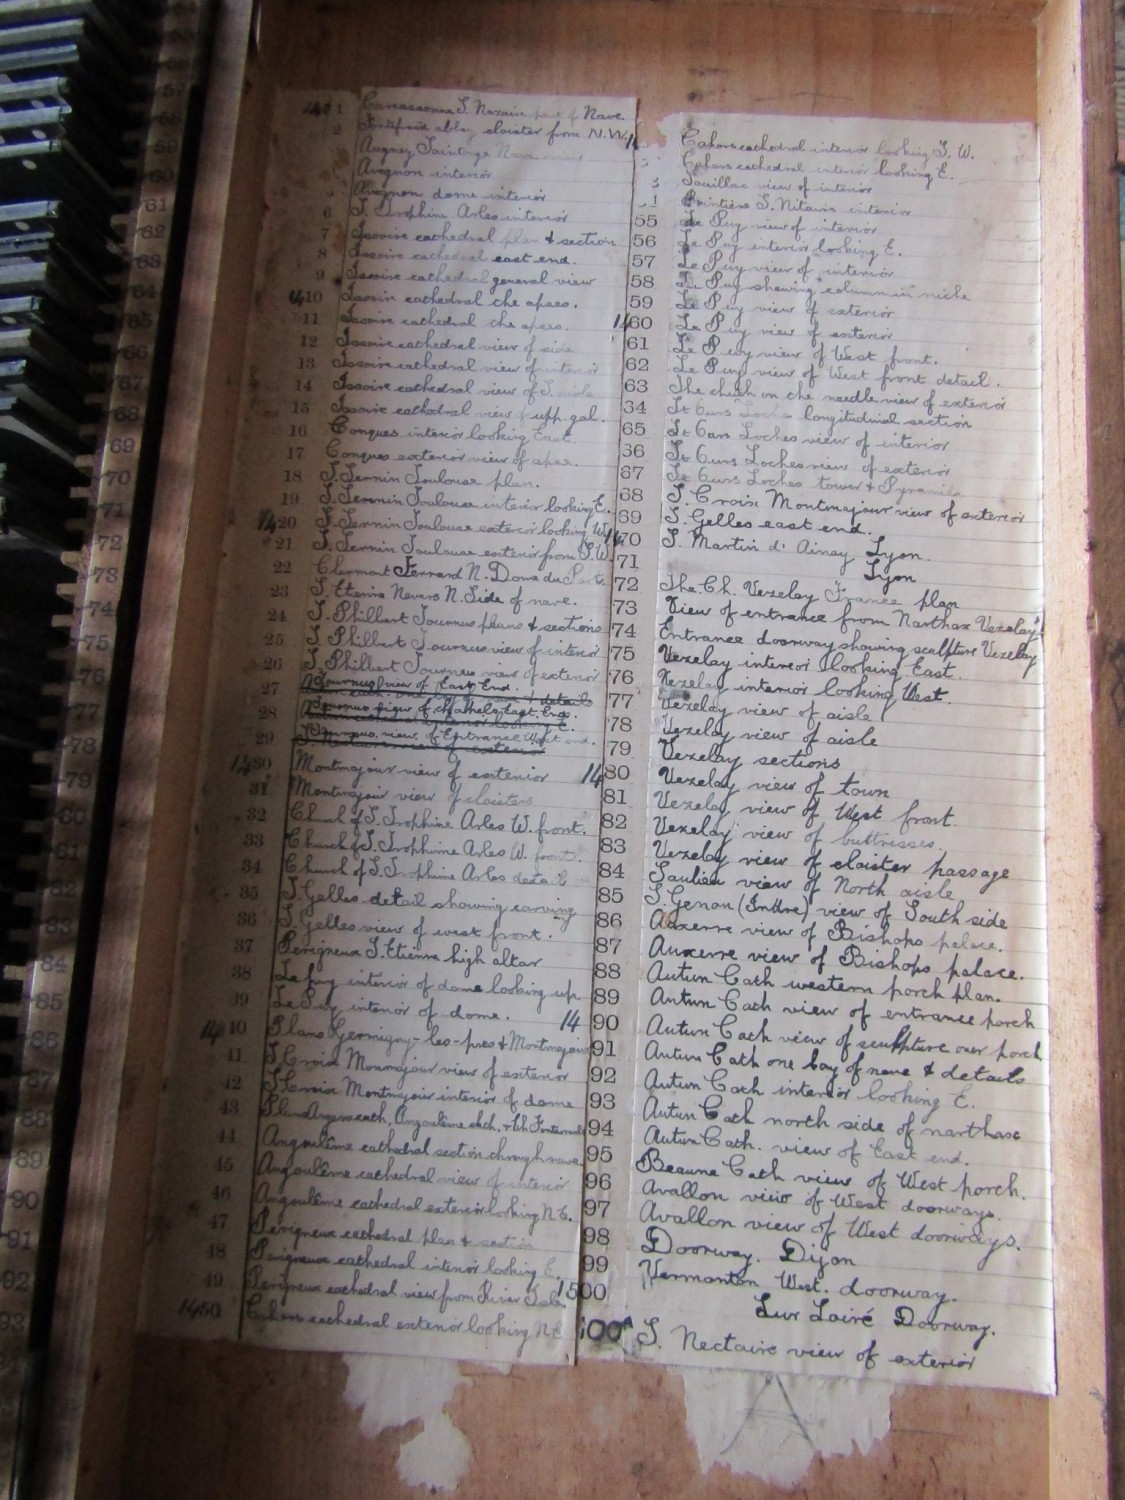 1401 Carcassonne S. Nazaire part of Nave.
2 Fontfroid abbey cloister from N.W.
Avignon interior
Avignon dome interior
6 S. Trophine Arles interior
7 Issoire cathedral plan & section
8 Issoire cathedral east end.
9 Issoire cathedral general view
1410 Issoire cathedral the apses.
11 Issoire cathedral the apses.
12 Issoire cathedral view of side
13 Issoire cathedral view of interior
14 Issoire cathedral view of S. aisle
15 Issoire cathedral view of upp. gal.
16 Conques interior looking East.
17 Conques exterior view of apse.
18 S. Sernin Toulouse plan.
19 S. Sernin Toulouse interior looking E.
1420 S. Sernin Toulouse exterior looking W.
21 S. Sernin Toulouse exterior from S.W.
22 Clermont Ferrand N. Dome du Port.
23 S. Etienne Nevers N. Side of nave.
24 S. Philbert Tournus plans & sections
25 S. Philbert Tournus view of interior
26 S. Philbert Tournus view of exterior
27 Tournus view of East End.
28 Tournus view of Chapels East End.
29 Tournus, view of Entrance West end.
1430 Montmajour view of exterior
31 Montmajour view of cloisters
32 Church of S. Trophine Arles W. front.
33 Church of S. Trophime Arles W. front.
34 Church of S. Trophime Arles detail
35 S. Gelles detail showing carving
36 S. Gelles view of west front.
37 Perigneux S. Etienne high altar
38 Le puy interior of dome looking up.
39 Le Puy interior of dome.
1440 Plans Germigny-les-pres & Montmajour
41 S. Croix Monmajour view of exterior
42 S. Croix Montmajour interior of dome
43 Plans Angers cath, Angoulême cath,
44 Angoulême cathedral section through nave
45 Angoulême cathedral view of interior
46 Angoulême cathedral exterior looking N.E.
47 Perigneux cathedral plan & section
48 Perigneux cathedral interior looking E.
49 Perigneux cathedral view from River
1450 Cahors cathedral exterior looking N.E
Cahors cathedral interior looking S. W.
Cahors cathedral interior looking E.
Souillac view of interior
interior
55 Le Puy view of interior
56 Le Puy interior looking E.
57 Le Puy view of interior
58 Le Puy showing column in niche
59 Le Puy view of exterior
1460 Le Puy view of exterior
61 Le Puy view of West front.
62 Le Puy view of West front detail.
63 The church on the needle view of exterior
64 St Ours Loches longitudinal section
65 St Ours Loches view of interior
66 St Ours Loches view of exterior
67 St Ours Loches tower & Pyramids
68 S. Croix Montmajour view of exterior
69 S. Gelles east end.
1470 S. Martin d' Ainay Lyon.
71 Lyon
72 The Ch. Vezelay France plan
73 View of entrance from Narthax Vezelay
74 Entrance doorway showing sculpture Vezelay
75 Vezelay interior looking East.
76 Vezelay interior looking West.
77 Vezelay view of aisle
78 Vezelay view of aisle
79 Vezelay sections
1480 Vezelay view of town
81 Vezelay view of West front.
82 Vezelay view of buttresses.
83 Vezelay view of cloister passage
84 Saulieu view of North aisle
85 S. Genou (Indre) view of South side
86 Auxerre view of Bishops palace.
87 Auxerre view of Bishops palace.
88 Autun Cath western porch plan.
89 Autun Cath view of entrance porch
14 90 Autun Cath view of sculpture over porch
91 Autun Cath one bay of nave & details
92 Autun Cath interior looking E.
93 Autun Cath north side of narthax
94 Autun Cath. view of East end.
95 Beaune Cath view of West porch.
96 Avallon view of West doorways.
97 Avallon view of West doorways.
98 Doorway. Dijon
99 Vermanton West. doorway.
1500 Sur Loiré Doorway.
S. Nectaire view of exterior
57
58
59
60
61
62
63
64
65
66
67
68
69
70
71
72
73
74
75
76
77
78
79
80
81
82
83
84
85
86
87
88
89
90
91
92
93